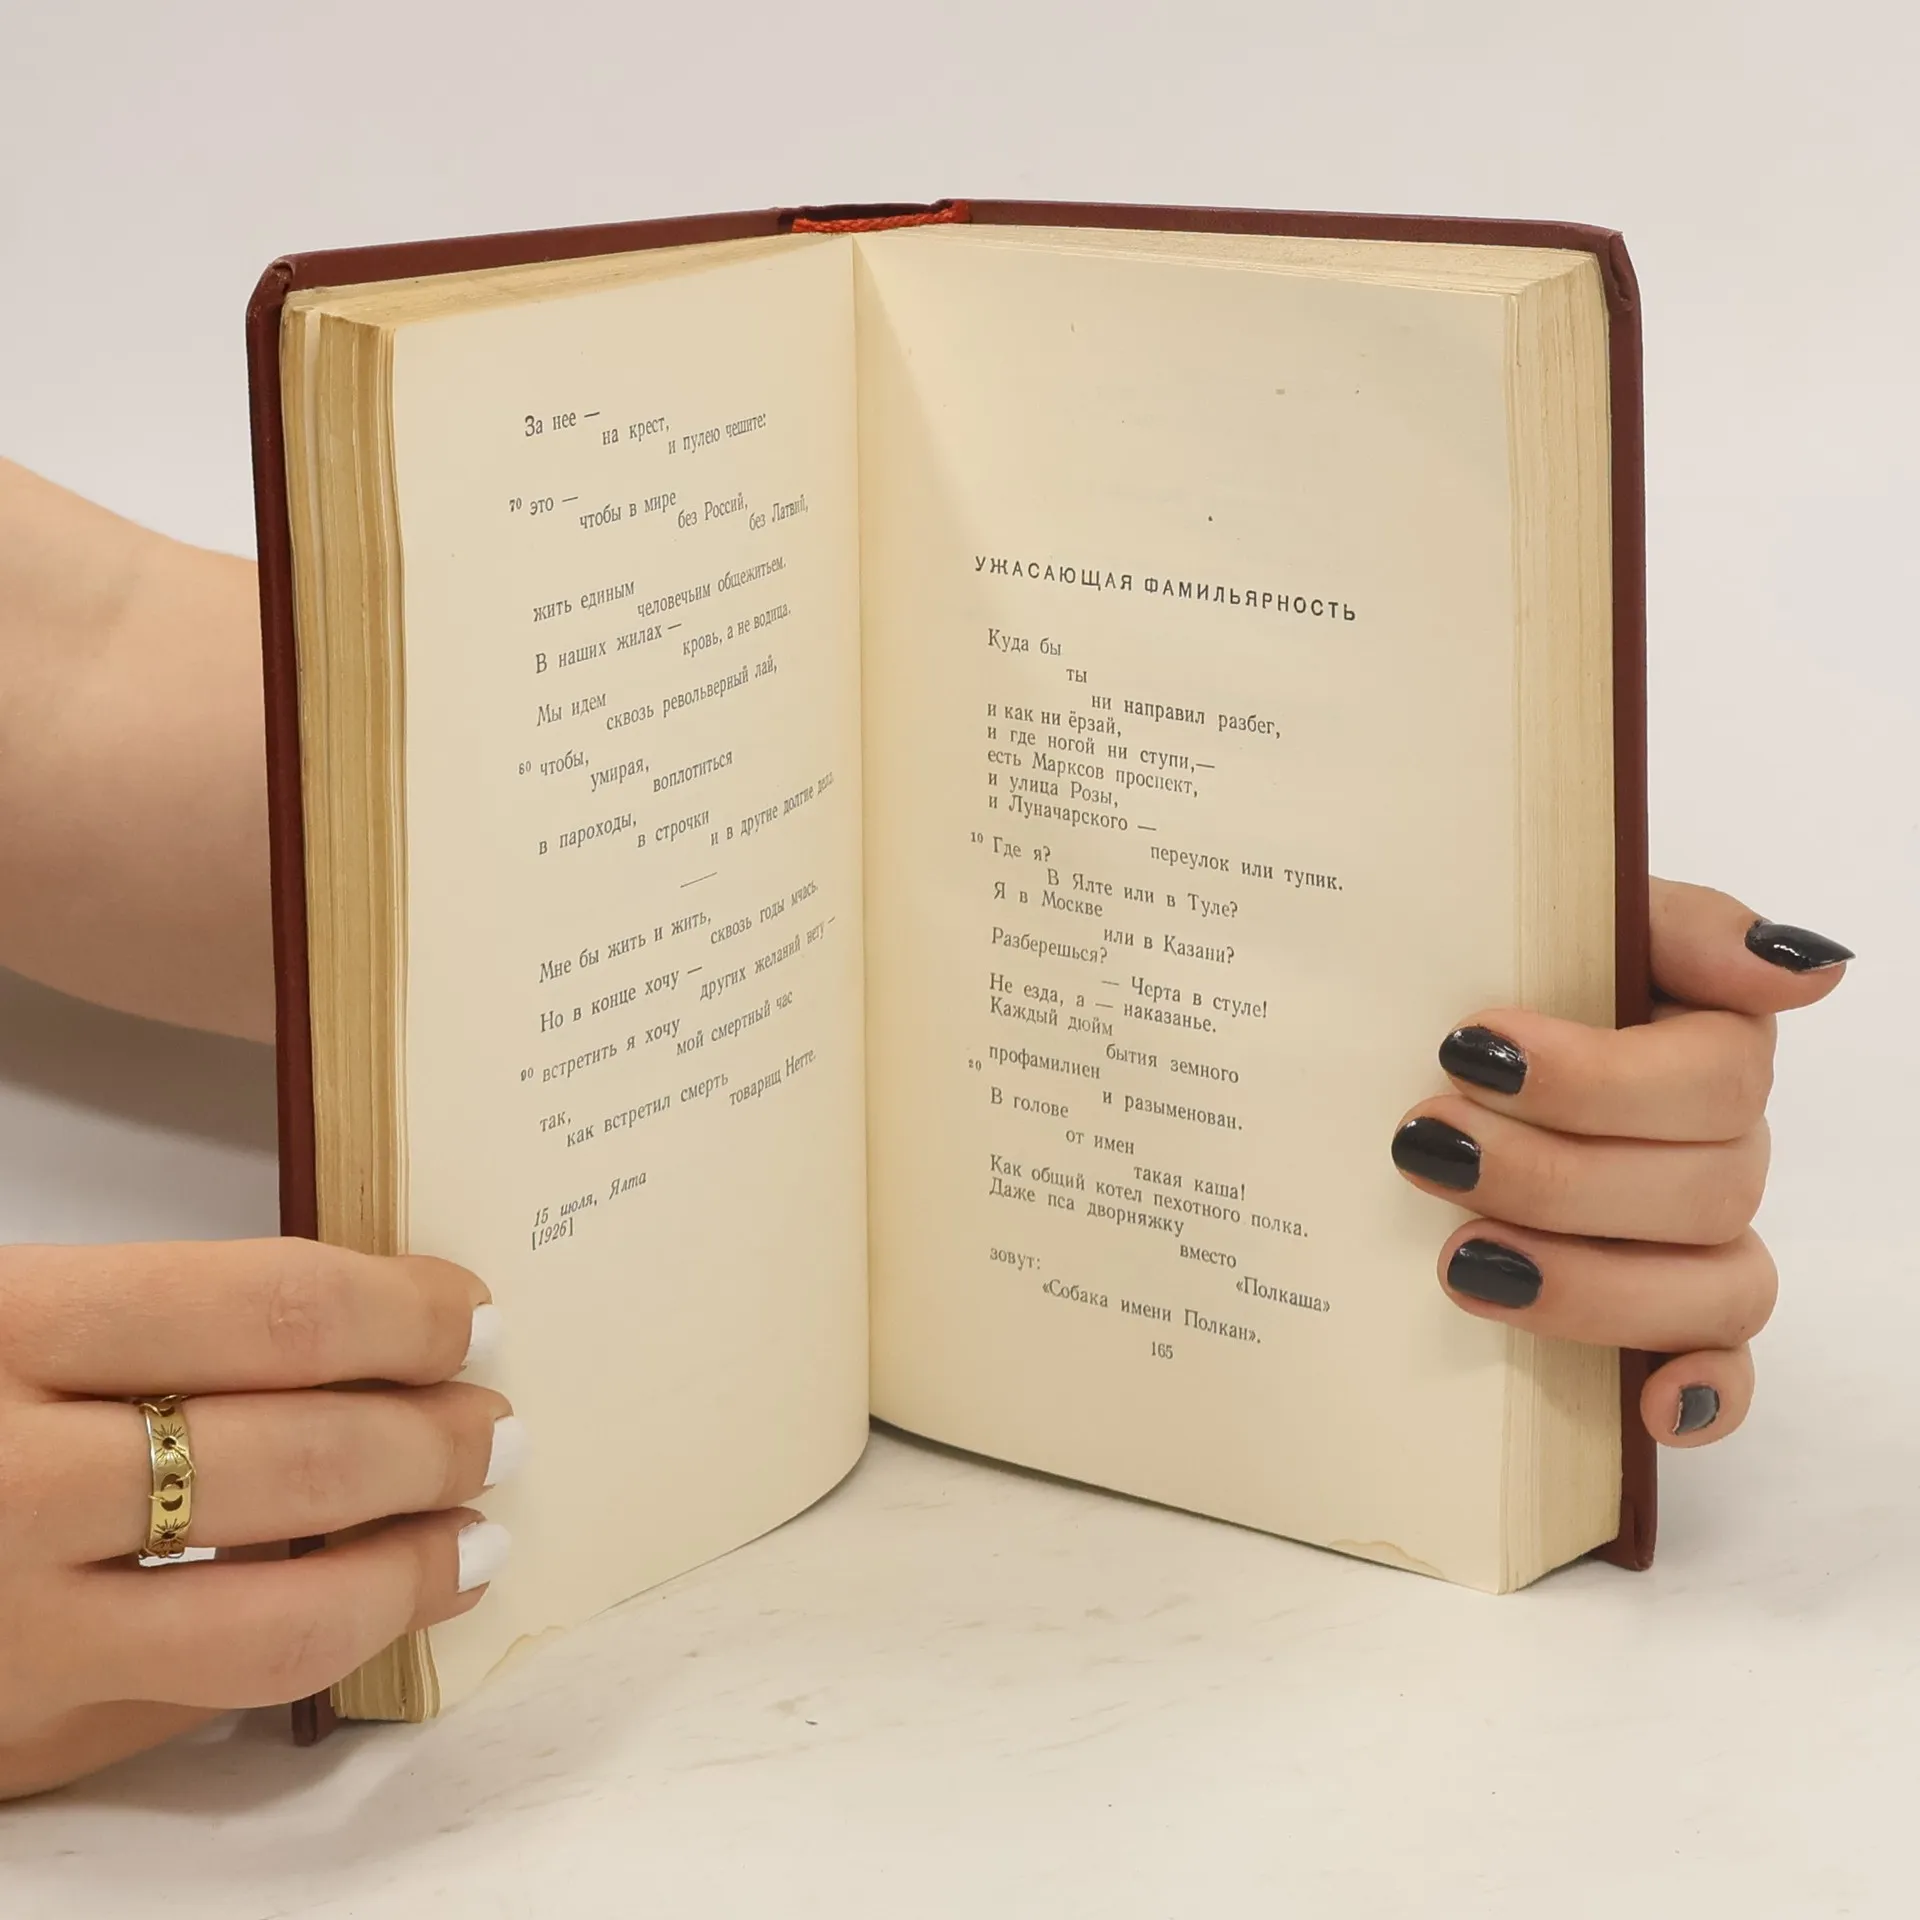 За нее —
на крест,
и пулею чешите:
70 это —
чтобы в мире
без Россий,
без Латвий,
жить единым
человечьим общежитьем.
В наших жилах —
кровь, а не водица.
Мы идем
сквозь револьверный лай,
80 чтобы,
умирая,
воплотиться
в пароходы,
в строчки
и в другие долгие дела.
Мне бы жить и жить,
сквозь годы мчась.
Но в конце хочу —
других желаний нету —
90 встретить я хочу
мой смертный час
так,
как встретил смерть
товарищ Нетте.
15 июля, Ялта
[1926]
УЖАСАЮЩАЯ ФАМИЛЬЯРНОСТЬ
Куда бы
ты
ни направил разбег,
и как ни ёрзай,
и где ногой ни ступи,—
есть Марксов проспект,
и улица Розы,
и Луначарского —
переулок или тупик.
10 Где я?
В Ялте или в Туле?
Я в Москве
или в Казани?
Разберешься?
— Черта в стуле!
Не езда, а — наказанье.
Каждый дюйм
бытия земного
профамилиен
20
и разыменован.
В голове
от имен
такая каша!
Как общий котел пехотного полка.
Даже пса дворняжку
вместо
«Полкаша»
зовут:
«Собака имени Полкан».
165